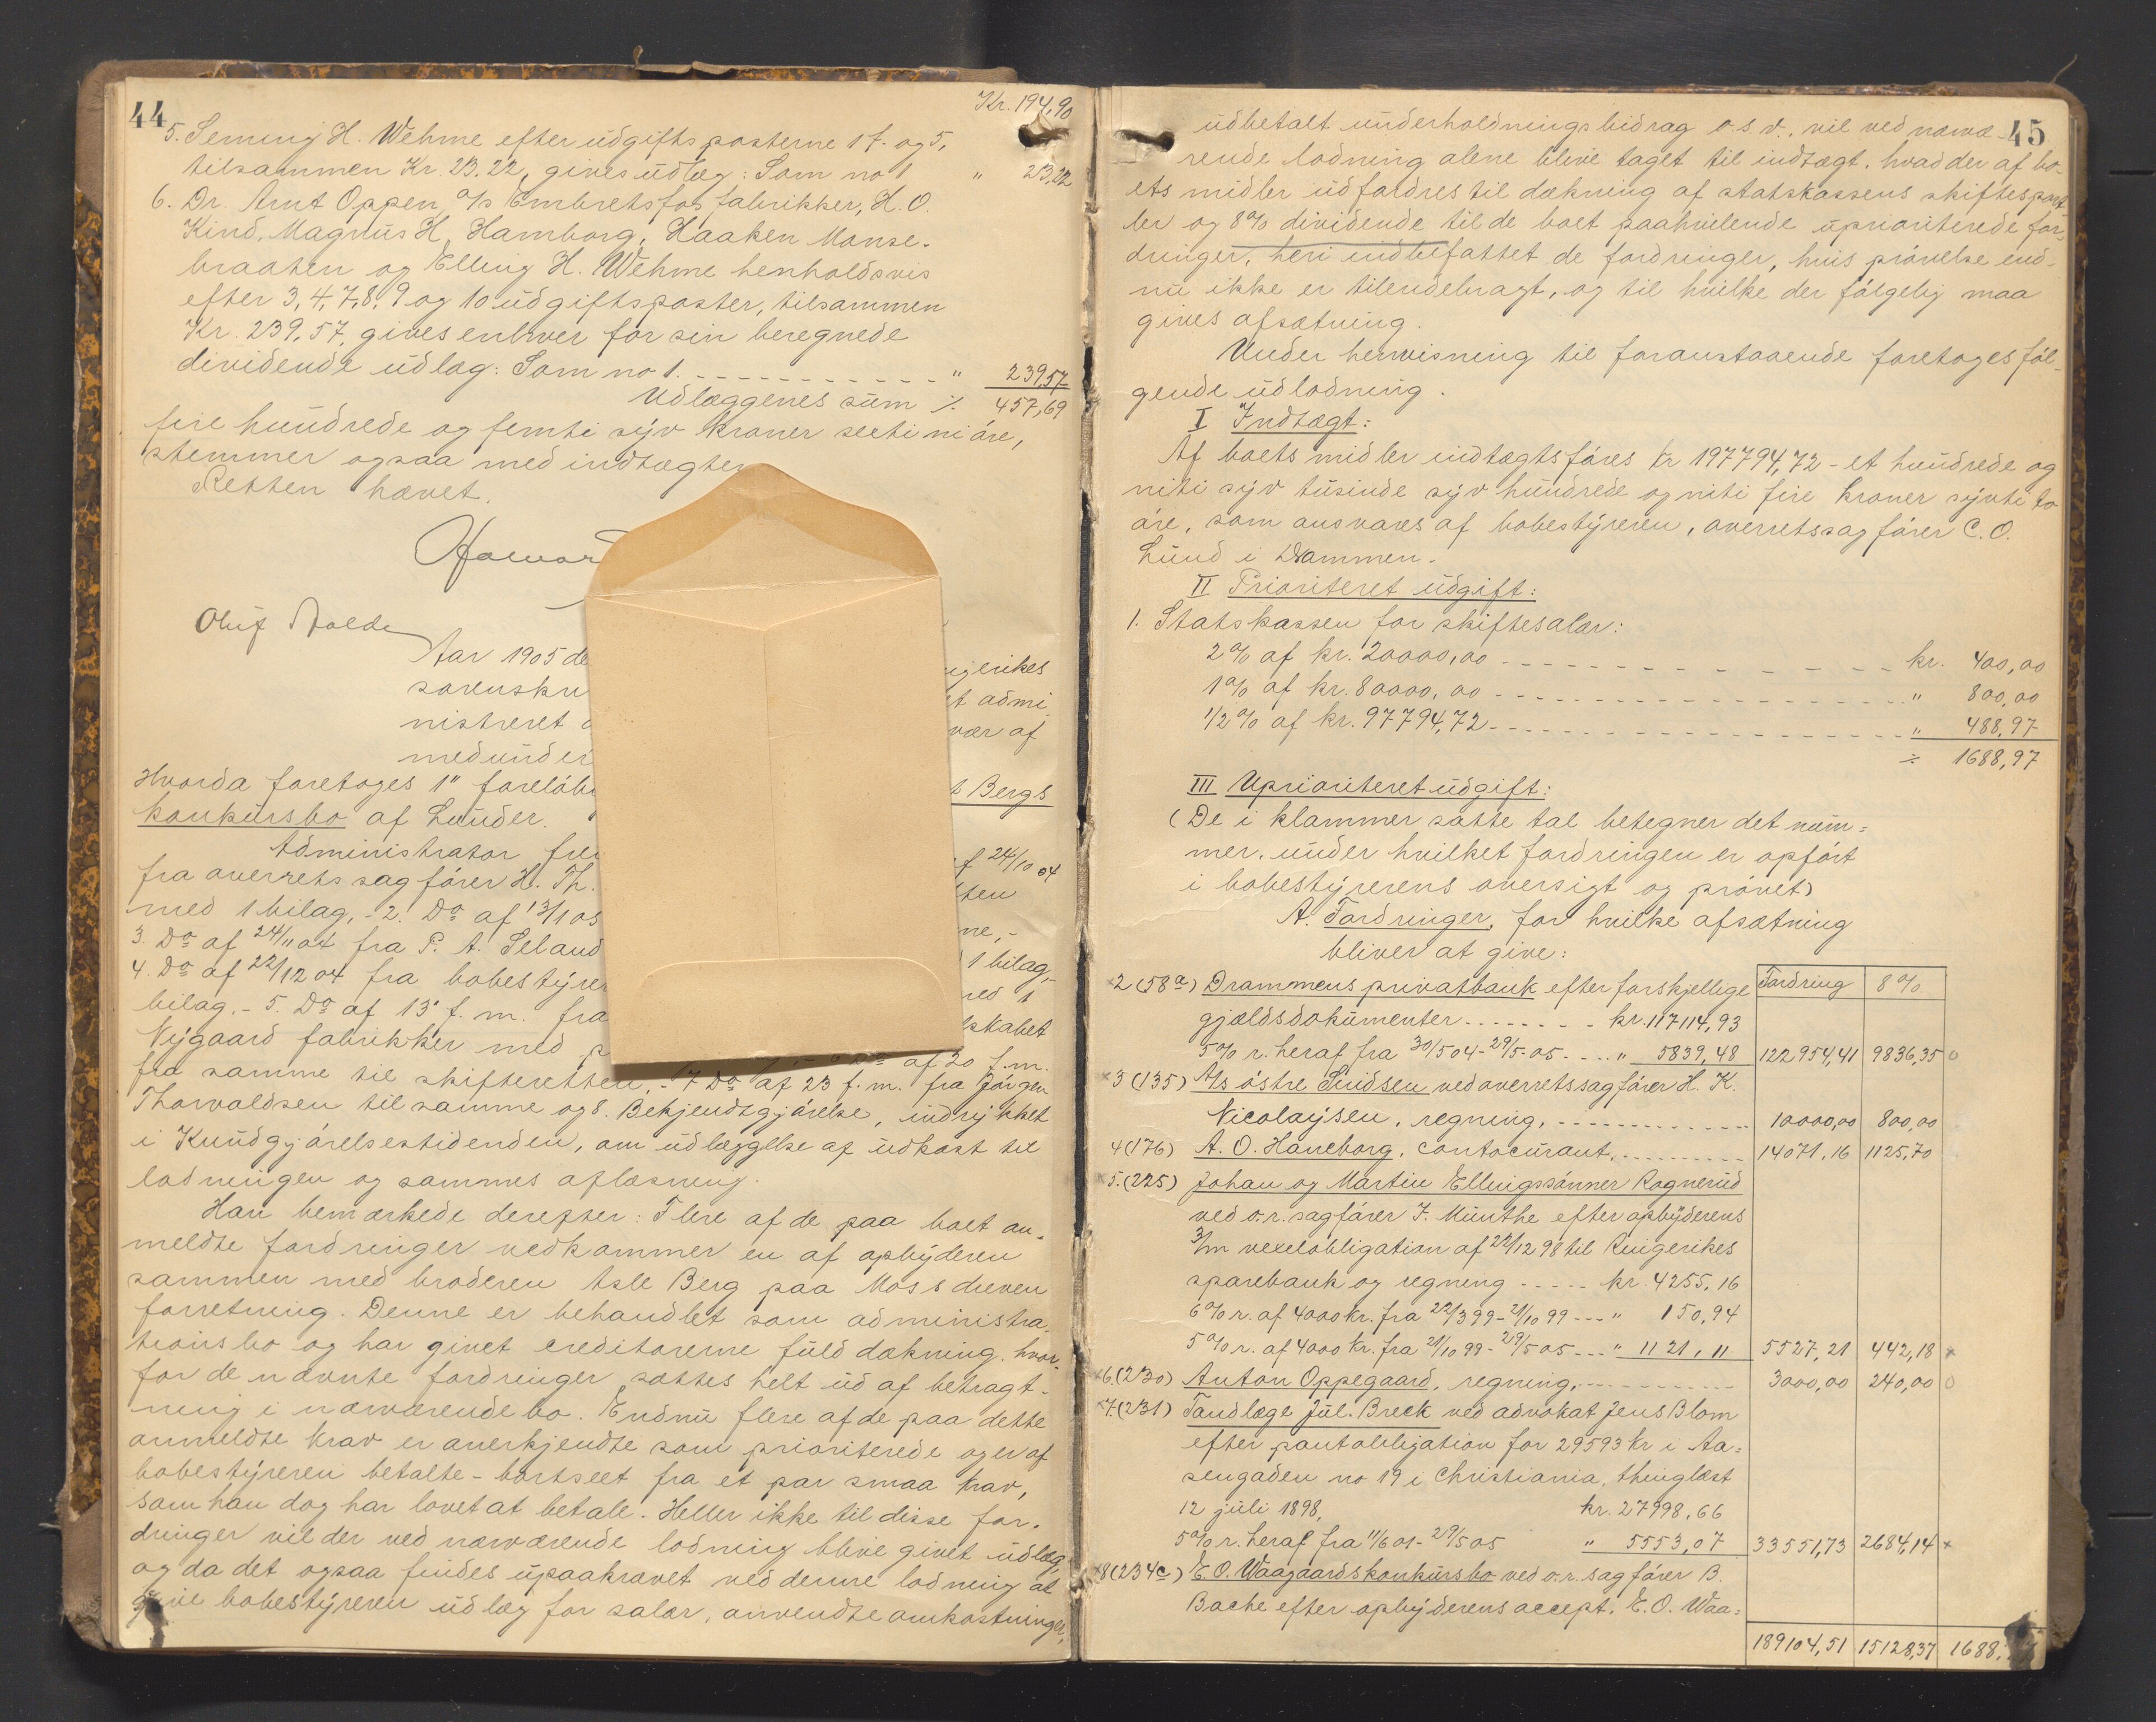 44
Kr. 194,90
5. Seming H. Wehme efter udgiftsposterne 1 f. og 5,
tilsammen Kr. 23.22, gives udlæg: Som no 1 " 23,22
6. Dr. Arnt Oppen, A/s Embretsfos fabrikker, H. O.
Kind, Magnus H. Hamborg, Haaken Monse-
braaten og Elling H. Wehme henholdsvis
efter 3, 4, 7, 8, 9 og 10 udgiftsposter, tilsammen
Kr. 239,57, gives enhver for sin beregnede
dividende udlæg: Som no 1. " 239,57
Udlæggenes sum ./. 457,69
fire hundrede og femti syv kroner seeti ni øre,
stemmer ogsaa med indtægten
Retten hævet.
Oluf Molde
Aar 1905 de
sorenskri
nistreret
medunder
ingerikes
et admi
vær af
Hvorda foretoges 1" foreløbi
t Bergs
konkursbo af Lunder.
Administrator fre
f 24/10 04
fra overrets sagfører H. Th.
tten
med 1 bilag, - 2. Do af 13/1 05
ne, -
3. Do af 24/11 04 fra P. A. Seland
1 bilag, -
4. Do af 22/12 04 fra bobestyrer
red 1
bilag. - 5. Do af 13' f. m. fra
lskabet
Nygaard fabrikker med p
af 20 f. m.
fra samme til skifteretten, - 7 Do af 23 f. m. fra Jørgen
Thorvaldsen til samme og 8. Bekjendtgjørelse, indrykket
i Kundgjørelsestidenden, om udlæggelse af udkast til
lodningen og sammes aflæsning.
Han bemærkede derefter: Flere af de paa boet an-
meldte fordringer vedkommer en af opbyderen
sammen med broderen Asle Berg paa Moss dreven
forretning. Denne er behandlet som administra-
tionsbo og har givet creditorerne fuld dækning, hvor-
for de nævnte fordringer sættes helt ud af betragt-
ning i nærværende bo. Endnu flere af de paa dette
anmeldte krav er anerkjendte som prioriterede og er af
bobestyreren betalte - bortseet fra et par smaa krav,
som han dog har lovet at betale. Heller ikke til disse for-
dringer vil der ved nærværende lodning blive givet udlæg,
og da det ogsaa findes upaakrævet ved denne lodning at
give bobestyreren udlæg for salær, anvendte omkostninger,
45
udbetalt underholdningsbidrag o. s. v., vil ved nærvæ-
rende lodning alene blive taget til indtægt, hvad der af bo-
ets midler udfordres til dækning af statskassens skiftespart-
ler og 8% dividende til de boet paahvilende uprioriterede for-
dringer, heri indbefattet de fordringer, hvis prøvelse end-
nu ikke er tilendebragt, og til hvilke der følgelig maa
gives afsætning.
Under henvisning til foranstaaende foretages føl-
gende udlodning.
I Indtægt:
Af boets midler indtægtsføres kr 197794,72 - et hundrede og
niti syv tusinde syv hundrede og niti fire kroner sytti to
øre, som ansvares af bobestyreren, overretssagfører C. O.
Lund i Drammen.
II Prioriteret udgift:
1. Statskassen for skiftesalær:
2% af kr. 20000,00 kr. 400,00
1% af kr. 80000,00 " 800,00
1/2% af kr. 97794,72 " 488,97
÷ 1688,97
III Uprioriteret udgift:
(De i klammer satte tal betegner det num-
mer, under hvilket fordringen er opført
i bobestyrerens oversigt og prøvet)
A. Fordringer, for hvilke afsætning
bliver at give:
Fordring 8%
2 (58a) Drammens privatbank efter forskjellige
gjældsdokumenter kr. 117114,93
5% r. heraf fra 30/5 04 - 29/5 05 " 5839,48 122954,41 9836,35 o
3 (135) A/s østre Smidsen ved overretssagfører H. K.
Nicolaysen, regning, 10000,00 800,00
4 (176) A. O. Haneborg, contocurant, 14071,16 1125,70
5. (225) Johan og Martin Ellingssønner Rognerud
ved o. r. sagfører F. Münthe efter opbyderens
3/m vexelobligation af 22/12 98 til Ringerikes
sparebank og regning kr. 4255,16
6% r. af 4000 kr. fra 22/3 99 - 21/10 99 " 150,94
5% r. af 4000 kr. fra 21/10 99 - 29/5 05 " 1121,11 5527,21 442,18 x
6. (230) Anton Oppegaard, regning, 3000,00 240,00 o
7. (231) Tandlæge Jul. Breck ved advokat Jens Blom
efter pantobligation for 29593 kr i Aa-
sengaden no 19 i Christiania, thinglæst
12 juli 1898, kr. 27998,66
5% r. heraf fra 11/6 01 - 29/5 05 " 5553,07 33551,73 2684,14 x
8 (234c) E. O. Waagaards konkursbo ved o. r. sagfører B.
Bache efter opbyderens accept, E. O. Waa-
189104,51 15128,37 1688,